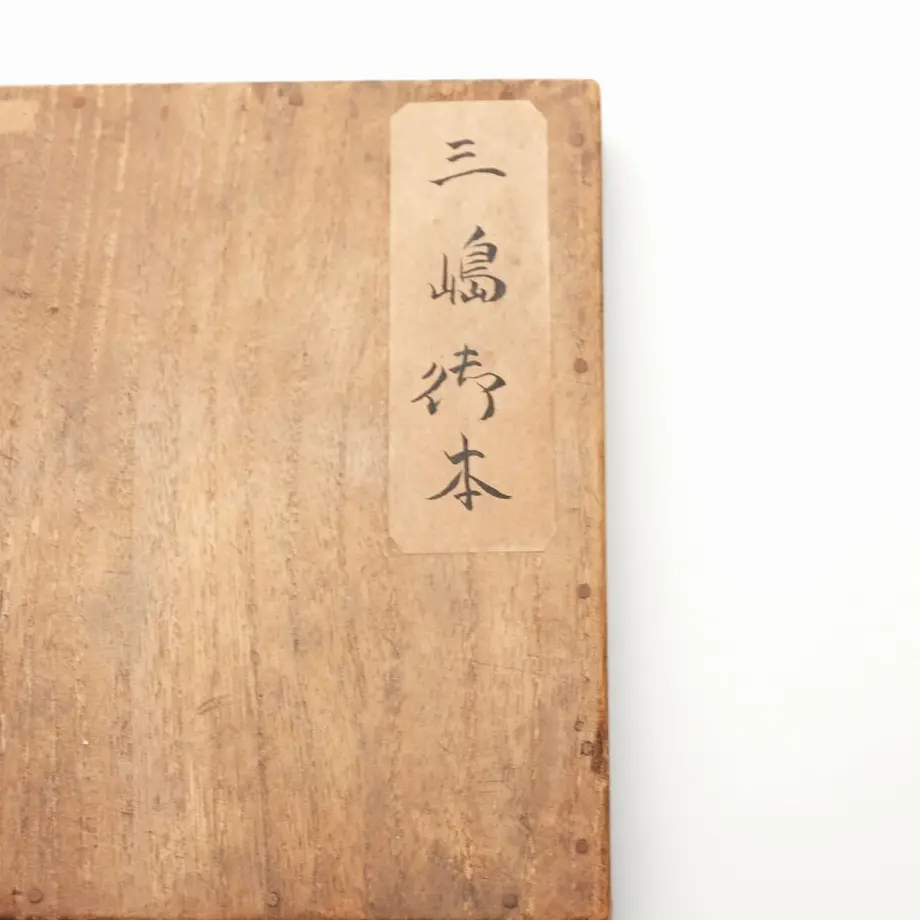 三嶋御本